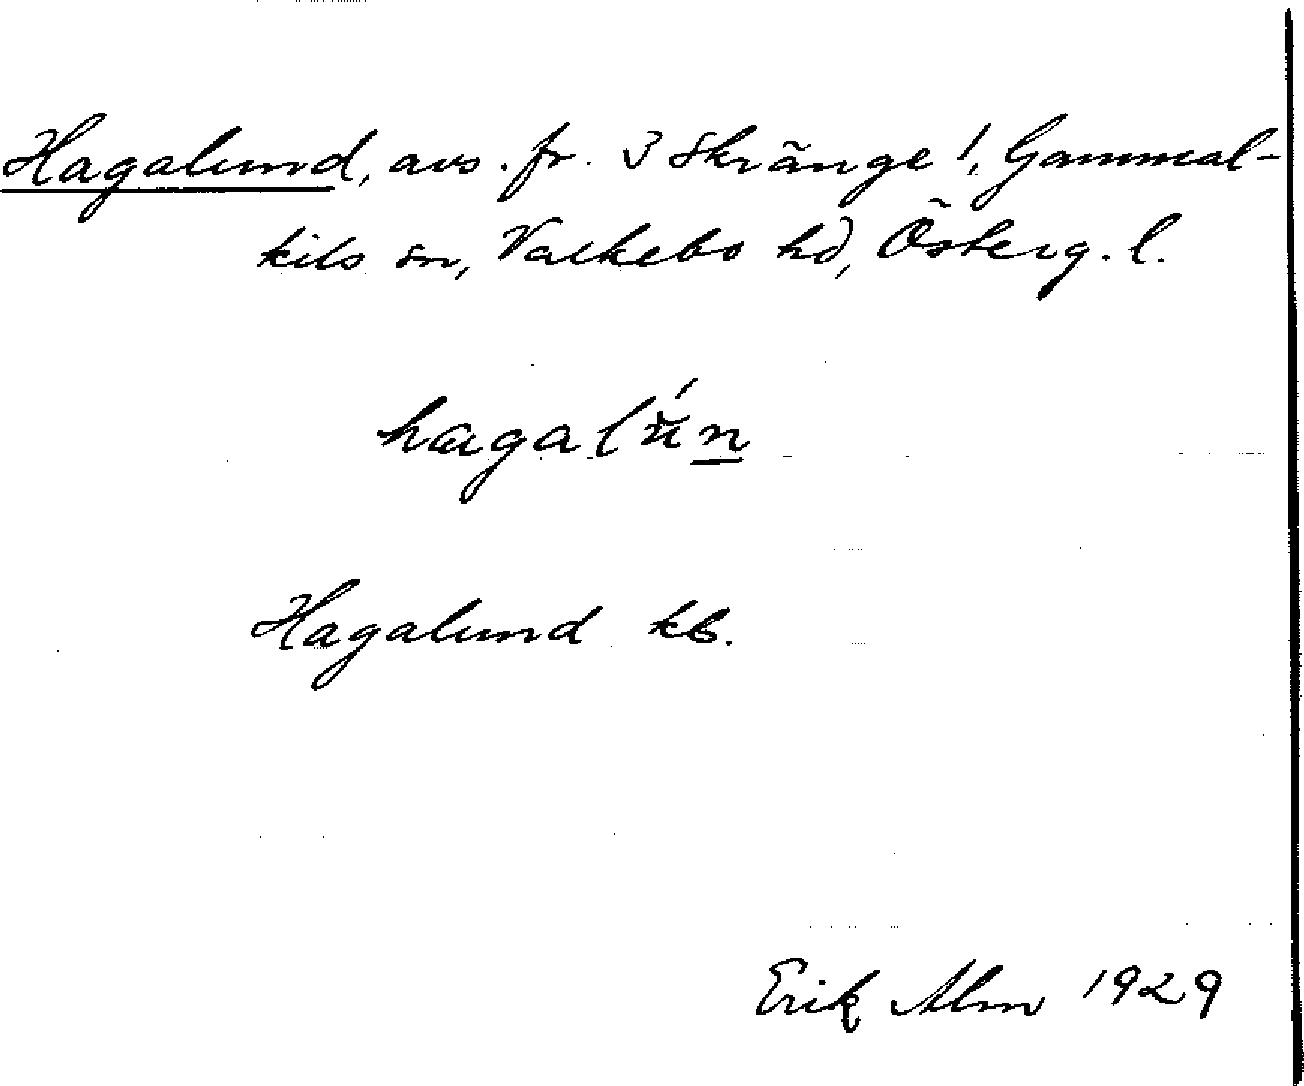 Hagalund, avs. fr. 3 Skränge 1, Gammal-
kils sn, Valkebo hd, Österg. l.
hagalún
Hagalund kb.
Erik Alm 1929